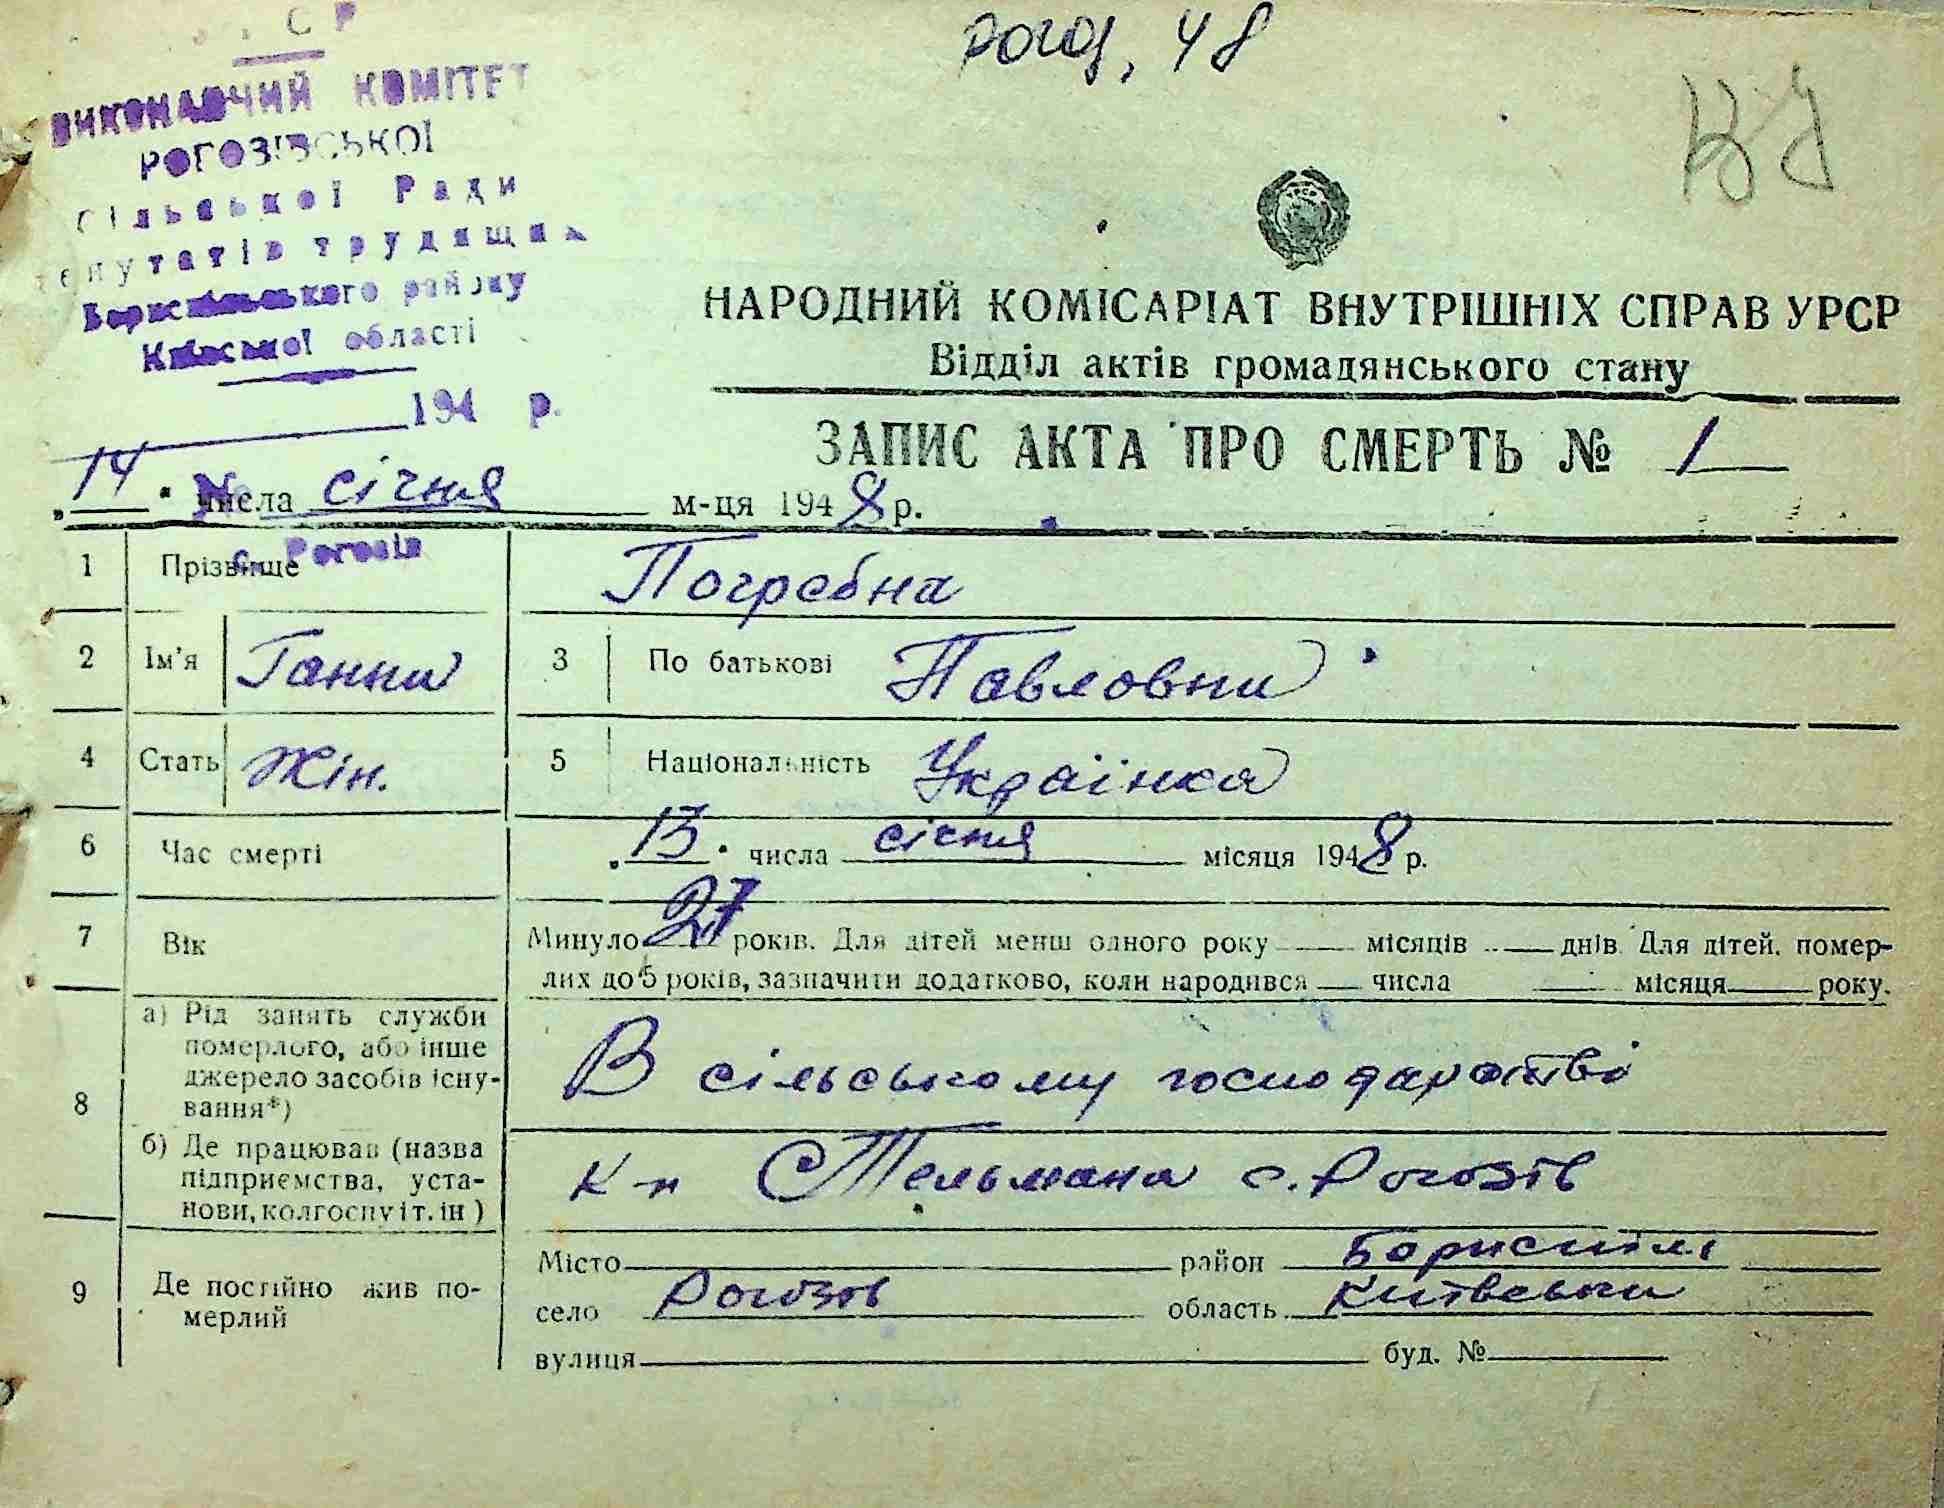 Рогоз, 48
УРСР
ВИКОНАВЧИЙ КОМІТЕТ
РОГОЗІВСЬКОЇ
Сільської Ради
депутатів трудящих
Бориспільського району
Київської області
194 р.
№
с. Рогозів
НАРОДНИЙ КОМІСАРІАТ ВНУТРІШНІХ СПРАВ УРСР
Відділ актів громадянського стану
ЗАПИС АКТА ПРО СМЕРТЬ № 1
„14" числа січня м-ця 1948 р.
1 Прізвище Погребна
2 Ім'я Ганна 3 По батькові Павловна
4 Стать Жін. 5 Національність Українка
6 Час смерті „13" числа січня місяця 1948 р.
7 Вік Минуло 27 років. Для дітей менш одного року — місяців — днів. Для дітей, помер-
лих до 5 років, зазначити додатково, коли народився — числа — місяця — року.
8 а) Рід занять служби
померлого, або інше
джерело засобів існу-
вання*)
В сільському господарстві
б) Де працював (назва
підприємства, уста-
нови, колгоспу і т. ін)
К-п Тельмана с. Рогозів
9 Де постійно жив по-
мерлий
Місто район Бориспіль
село Рогозов область Київська
вулиця буд. №